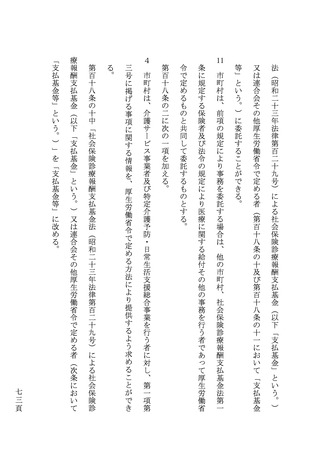 法（昭和二十三年法律第百二十九号）による社会保険診療報酬支払基金（以下「支払基金」という。）
又は連合会その他厚生労働省令で定める者（第百十八条の十及び第百十八条の十一において「支払基金
等」という。）に委託することができる。
11　市町村は、前項の規定により事務を委託する場合は、他の市町村、社会保険診療報酬支払基金法第一
条に規定する保険者及び法令の規定により医療に関する給付その他の事務を行う者であって厚生労働省
令で定めるものと共同して委託するものとする。
第百十八条の二に次の一項を加える。
４　市町村は、介護サービス事業者及び特定介護予防・日常生活支援総合事業を行う者に対し、第一項第
三号に掲げる事項に関する情報を、厚生労働省令で定める方法により提供するよう求めることができ
る。
第百十八条の十中「社会保険診療報酬支払基金法（昭和二十三年法律第百二十九号）による社会保険診
療報酬支払基金（以下「支払基金」という。）又は連合会その他厚生労働省令で定める者（次条において
「支払基金等」という。）」を「支払基金等」に改める。
七三頁